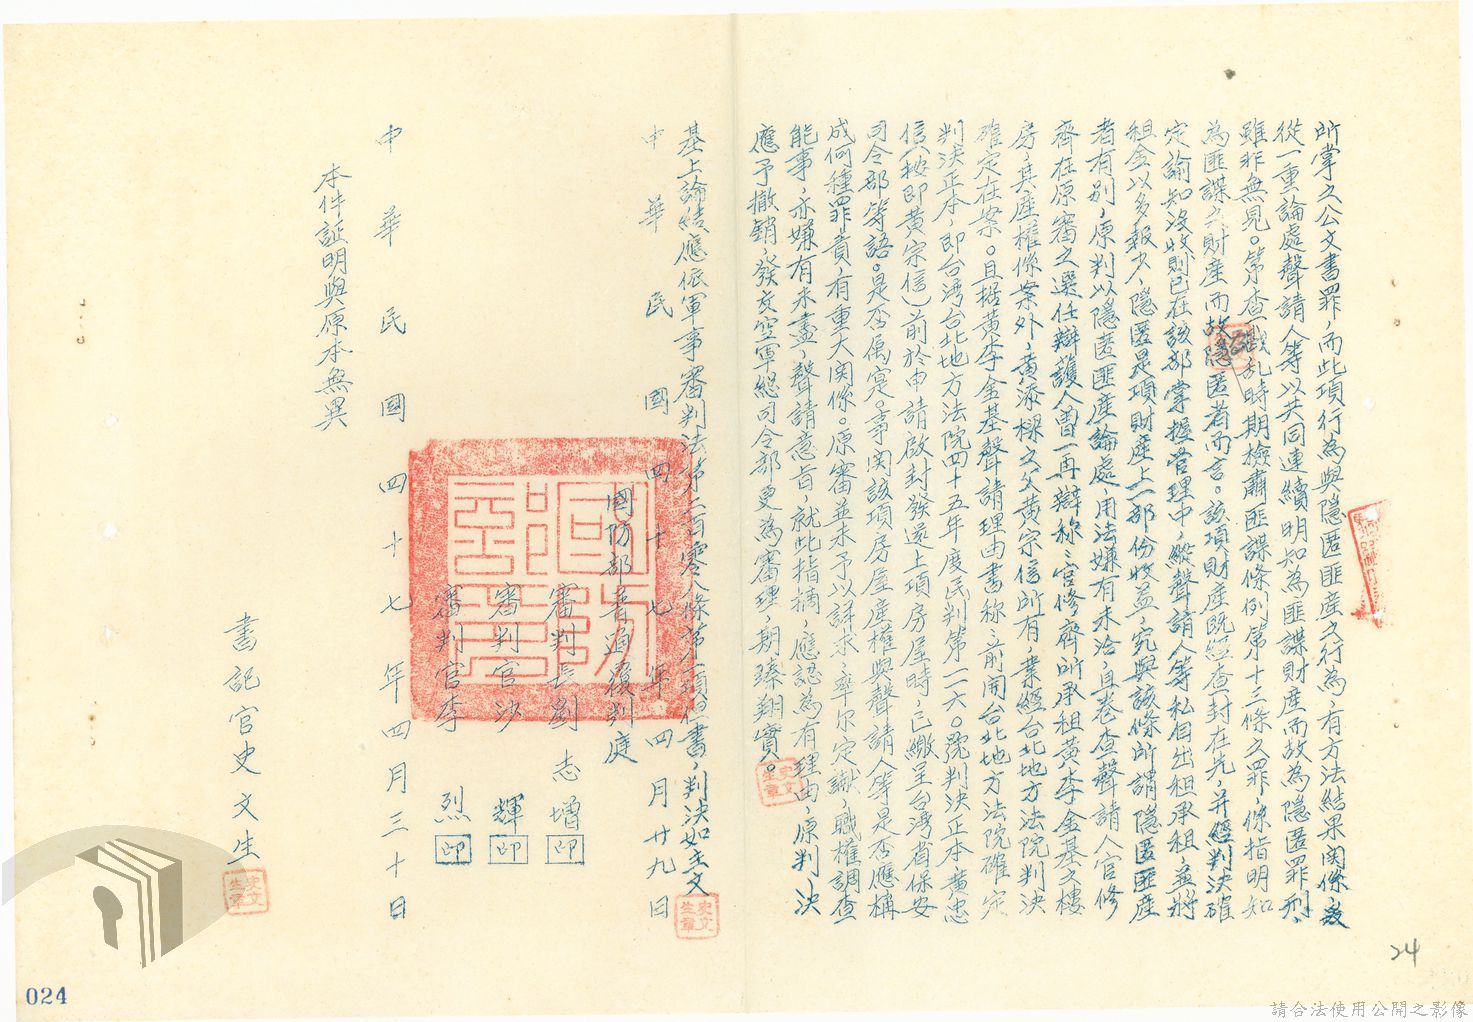 所掌之公文書罪，而此項行為與隱匿匪產之行為，有方法結果關係，爰
從一重論處聲請人等以共同連續明知為匪諜財產而故為隱匿罪刑，
雖非無見。第查戡亂時期檢肅匪諜條例第十三條之罪，係指明知
為匪諜之財產而故隱匿者而言。該項財產既經查封在先，并經判決確
定諭知沒收則已在該部掌握管理中，縱聲請人等私自出租承租，並將
租金以多報少，隱匿是項財產上一部份收益，究與該條所謂隱匿匪產
者有別，原判以隱匿匪產論處，用法嫌有未洽，且卷查聲請人官修
齊在原審之選任辯護人曾一再辯称：官修齊所承租黃李金基之樓
房，其產權係案外黃添樑之父黃宗信所有，業經台北地方法院判決
確定在案。且据黃李金基聲請理由書称：前開台北地方法院確定
判決正本，即台湾台北地方法院四十五年度民判第一一六〇號判決正本黃忠
信（按即黃宗信）前於申請啟封發還上項房屋時，已繳呈台湾省保安
司令部等語。是否属实。事関該項房屋產權與聲請人等是否應構
成何種罪責，有重大関係。原審並未予以詳求，率尔定讞，職權調查
能事，亦嫌有未盡，聲請意旨，就此指摘，應認為有理由，原判決
應予撤銷，發交空軍總司令部更為審理，期臻翔實。
基上論結應依軍事審判法第二百零八條第一項但書，判決如主文
中華民國四十七年四月廿九日
國防部普通覆判庭
審判長劉志增 印
審判官沙輝 印
審判官李烈 印
中華民國四十七年四月三十日
本件証明與原本無異
書記官史文生
史文生章
史文生章
史文生章
24
024
請合法使用公開之影像